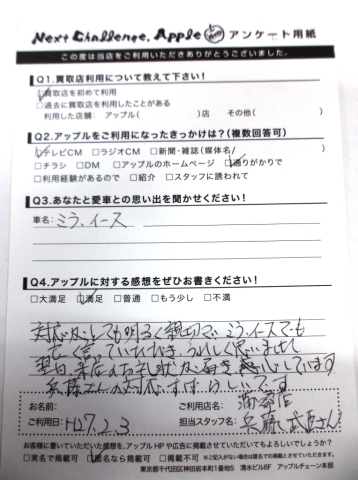 Next Challenge. Apple アンケート用紙
この度は当店をご利用いただきありがとうございました。
Q1.買取店利用について教えて下さい!
□買取店を初めて利用
□過去に買取店を利用したことがある
利用した店舗: アップル( )店 その他( )
Q2.アップルをご利用になったきっかけは?(複数回答可)
□テレビCM □ラジオCM □新聞・雑誌(媒体名/ )
□チラシ □DM □アップルのホームページ □通りがかりで
□利用経験があるので □紹介 □スタッフに誘われて
Q3.あなたと愛車との思い出を聞かせください!
車名: ミラ、イース
Q4.アップルに対する感想をぜひお書きください!
□大満足 □満足 □普通 □もう少し □不満
対応がとても明るく親切で ミライースでも
言っていただき うれしく思いました
翌日、来店のお礼状が届き 感心しています
兵藤さんの対応 すばらしいです
お名前: ご利用店名: 蒲郡店
ご利用日: H27.2.3 担当スタッフ名: 兵藤、武
お客様に書いていただいた感想を、アップルHPや広告に掲載させていただいてもよろしいでしょうか?
□実名で掲載可 □匿名なら掲載可 □掲載不可 ※ご記入がない場合は匿名での掲載とさせていただきます。
東京都千代田区神田岩本町1番地5 清水ビル6F アップルチェーン本部